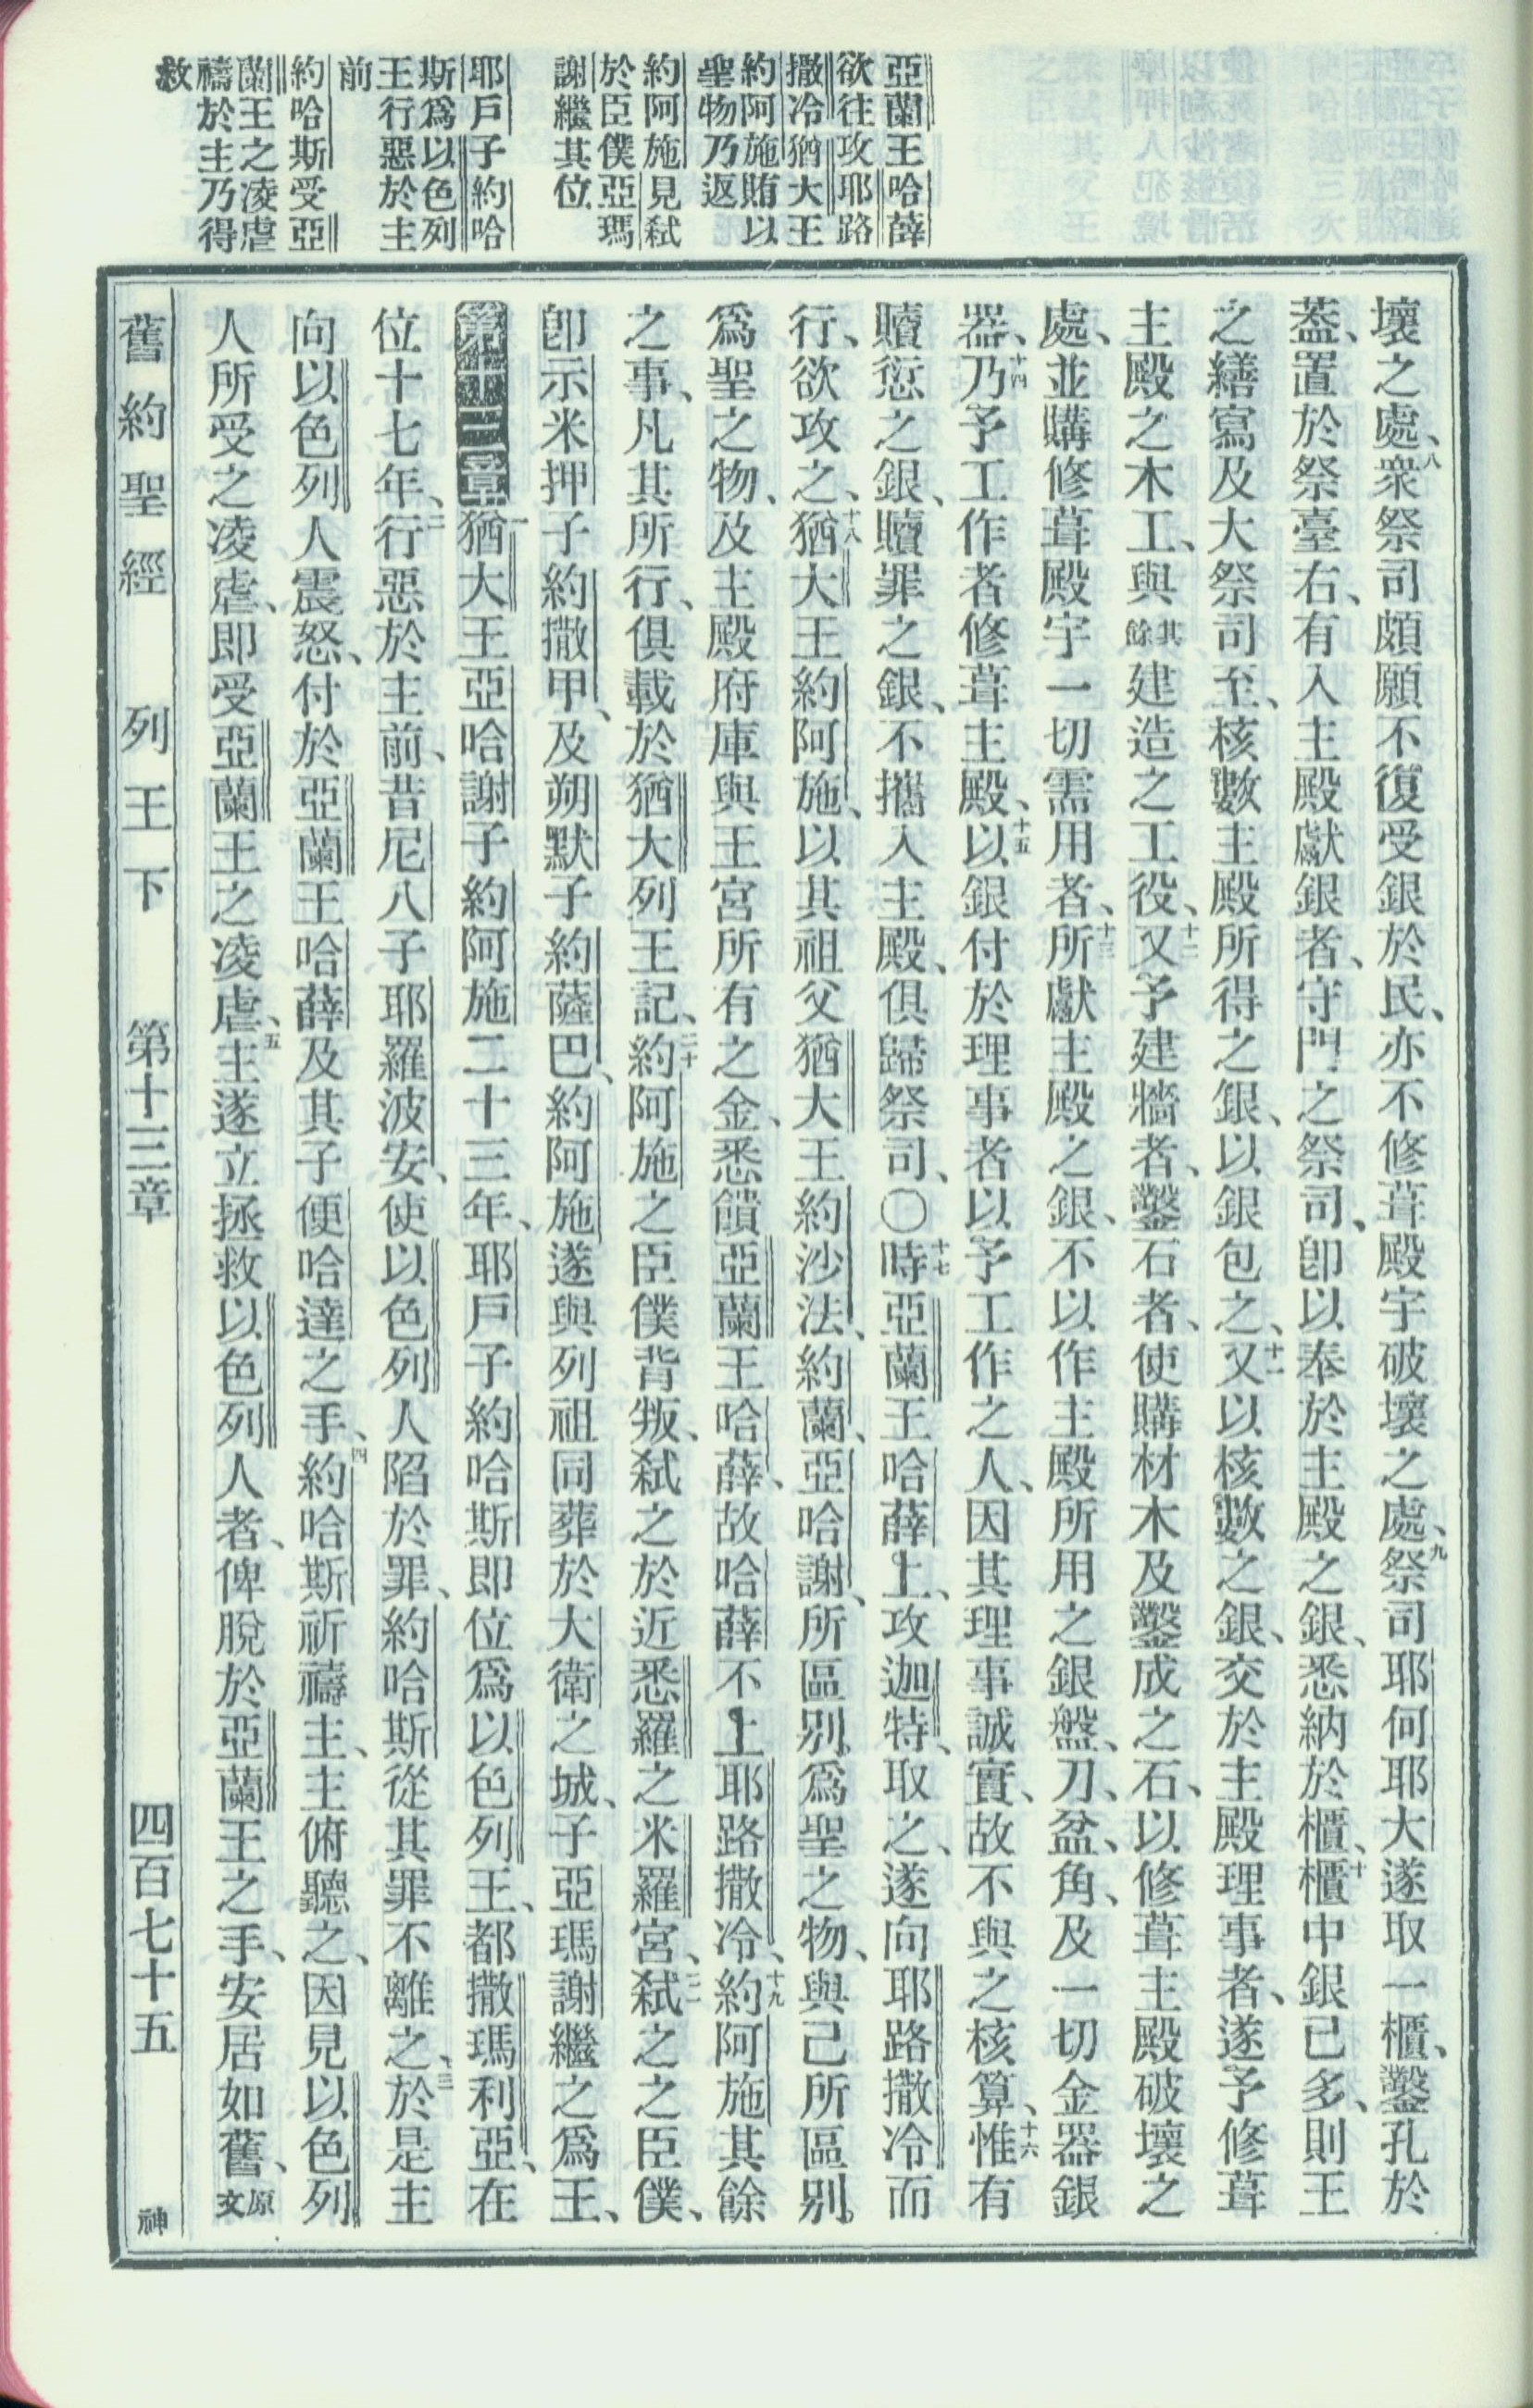 亞蘭王哈薛
欲往攻耶路
撒冷猶大王
約阿施賄以
聖物乃返
約阿施見弒
於臣僕亞瑪
謝繼其位
耶戶子約哈
斯爲以色列
王行惡於主
前
約哈斯受亞
蘭王之凌虐
禱於主乃得
救
壞之處、八衆祭司頗願不復受銀於民、亦不修葺殿宇破壞之處、九祭司耶何耶大遂取一櫃、鑿孔於
葢、置於祭臺右、有入主殿獻銀者、守門之祭司、卽以奉於主殿之銀、悉納於櫃、十櫃中銀已多、則王
之繕寫及大祭司至、核數主殿所得之銀、以銀包之、十一又以核數之銀、交於主殿理事者、遂予修葺
主殿之木工、與其餘建造之工役、十二又予建牆者、鑿石者、使購材木及鑿成之石、以修葺主殿破壞之
處、並購修葺殿宇一切需用者、十三所獻主殿之銀、不以作主殿所用之銀盤、刀、盆、角、及一切金器銀
器、十四乃予工作者修葺主殿、十五以銀付於理事者以予工作之人、因其理事誠實、故不與之核算、十六惟有
贖愆之銀、贖罪之銀、不攜入主殿、俱歸祭司、〇十七時亞蘭王哈薛上、攻迦特、取之、遂向耶路撒冷而
行、欲攻之、十八猶大王約阿施、以其祖父猶大王約沙法、約蘭、亞哈謝、所區別爲聖之物、與己所區別
爲聖之物、及主殿府庫與王宮所有之金、悉饋亞蘭王哈薛、故哈薛不上耶路撒冷、十九約阿施其餘
之事、凡其所行、俱載於猶大列王記、二十約阿施之臣僕背叛、弒之於近悉羅之米羅宮、二一弒之之臣僕、
卽示米押子約撒甲、及朔默子約薩巴、約阿施遂與列祖同葬於大衛之城、子亞瑪謝繼之爲王、
第十三章一猶大王亞哈謝子約阿施二十三年、耶戶子約哈斯即位爲以色列王、都撒瑪利亞、在
位十七年、二行惡於主前、昔尼八子耶羅波安、使以色列人陷於罪、約哈斯從其罪不離之、三於是主
向以色列人震怒、付於亞蘭王哈薛及其子便哈達之手、四約哈斯祈禱主、主俯聽之、因見以色列
人所受之凌虐、即受亞蘭王之凌虐、五主遂立拯救以色列人者、俾脫於亞蘭王之手、安居如舊、原文
舊約聖經　列王下　第十三章　四百七十五　神